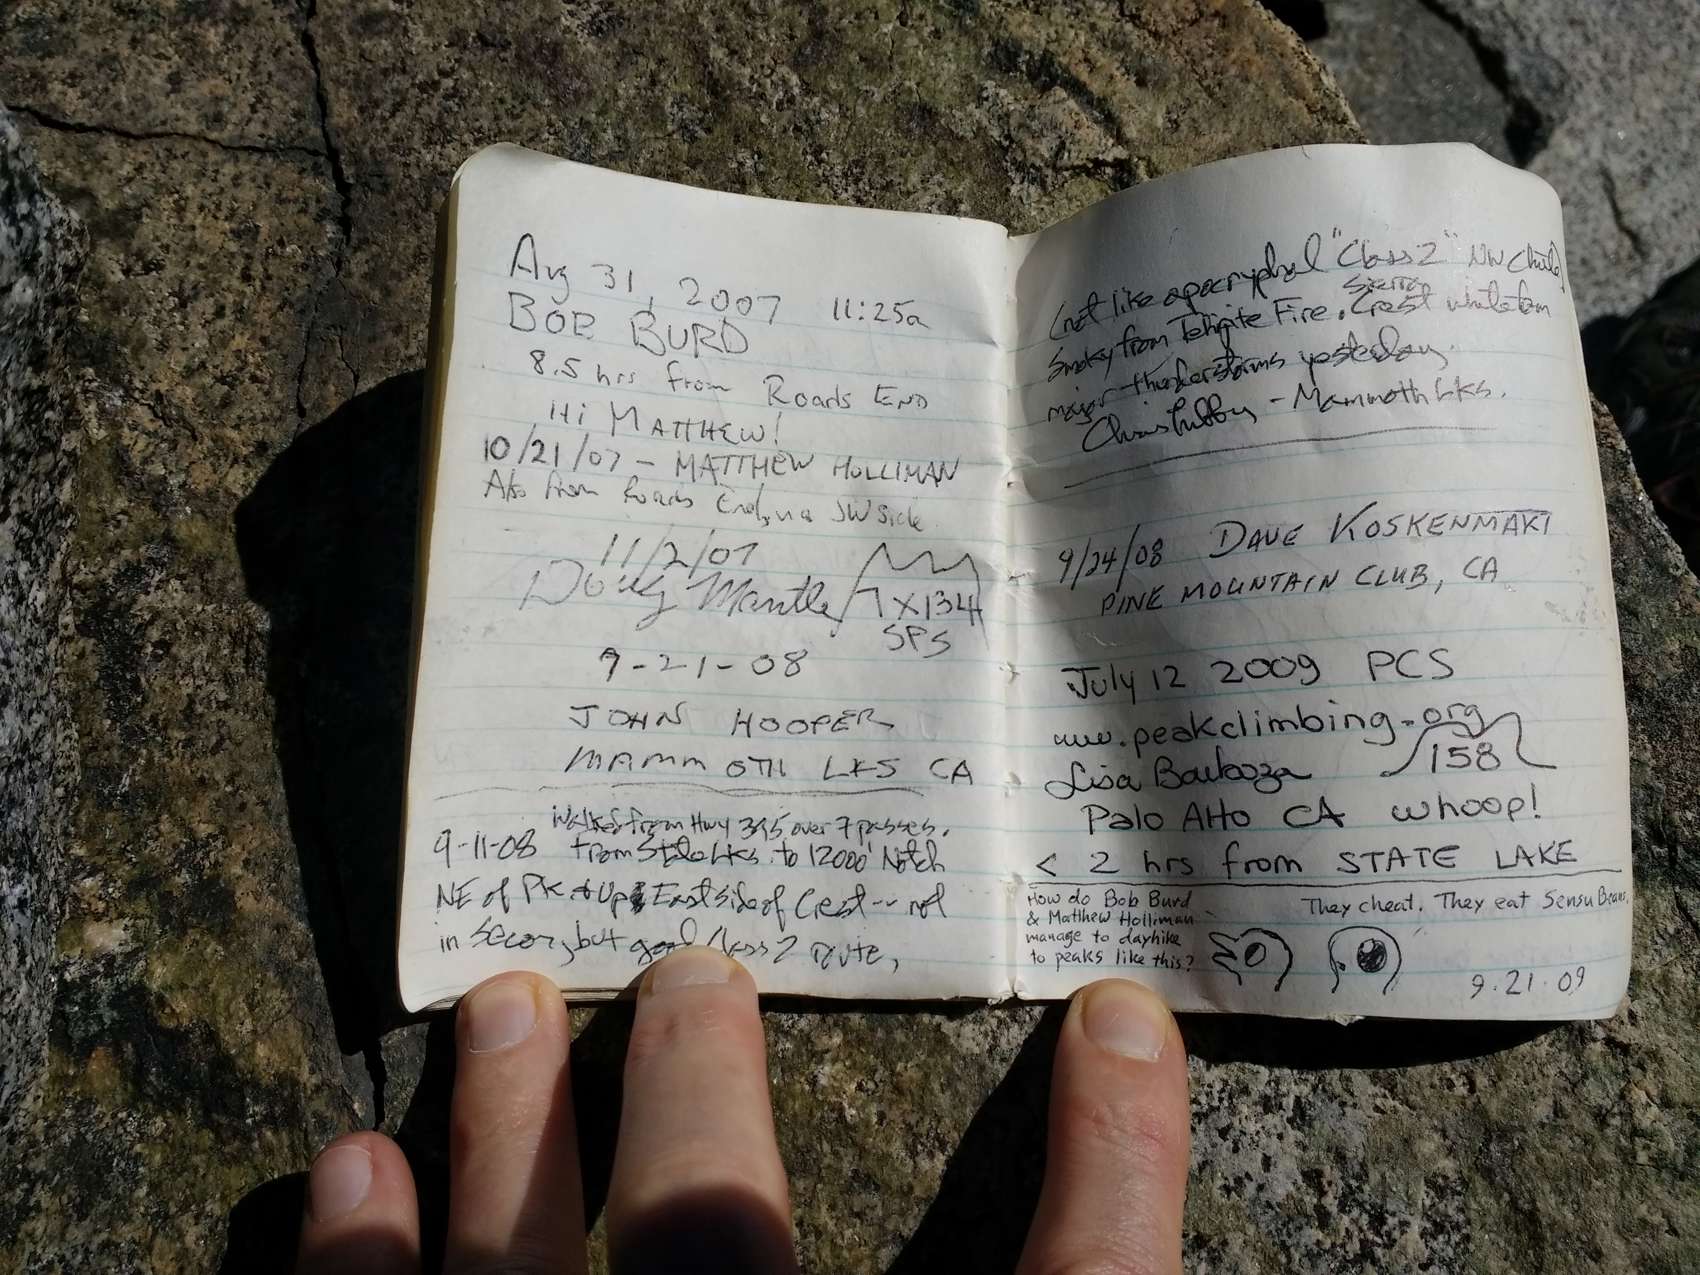 Aug 31, 2007 11:25a
BOB BURD
8.5 hrs from Roads End
Hi MATTHEW!
10/21/07 - MATTHEW HOLLIMAN
Also from Roads End, via SW side
11/2/07
Doug Mantle X134
SPS
9-21-08
JOHN HOOPER
MAMMOTH LKS CA
Walked from Hwy 395 over 7 passes.
9-11-08 from State Lks. to 12000' Notch
NE of Pk & Up East side of Crest -- not
in Secor, but good Class 2 route,
(not like apocryphal "Class 2" NW Chute)
Smoky from Tehipite Fire. Sierra Crest white from
major thunderstorms yesterday.
Chris Libby - Mammoth Lks.
9/24/08 DAVE KOSKENMAKI
PINE MOUNTAIN CLUB, CA
July 12 2009 PCS
www.peakclimbing.org
Lisa Barboza 158
Palo Alto CA whoop!
< 2 hrs from STATE LAKE
How do Bob Burd
& Matthew Holliman
manage to dayhike
to peaks like this?
They cheat. They eat Sensu Beans.
9.21.09